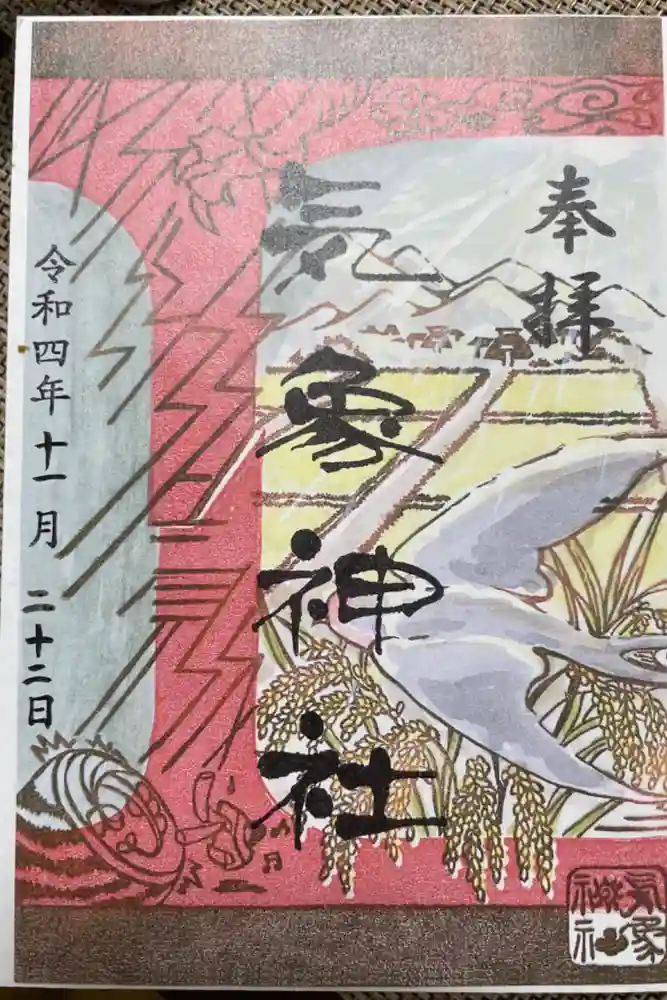 奉拝
気象神社
令和四年十一月二十二日
気象
神社